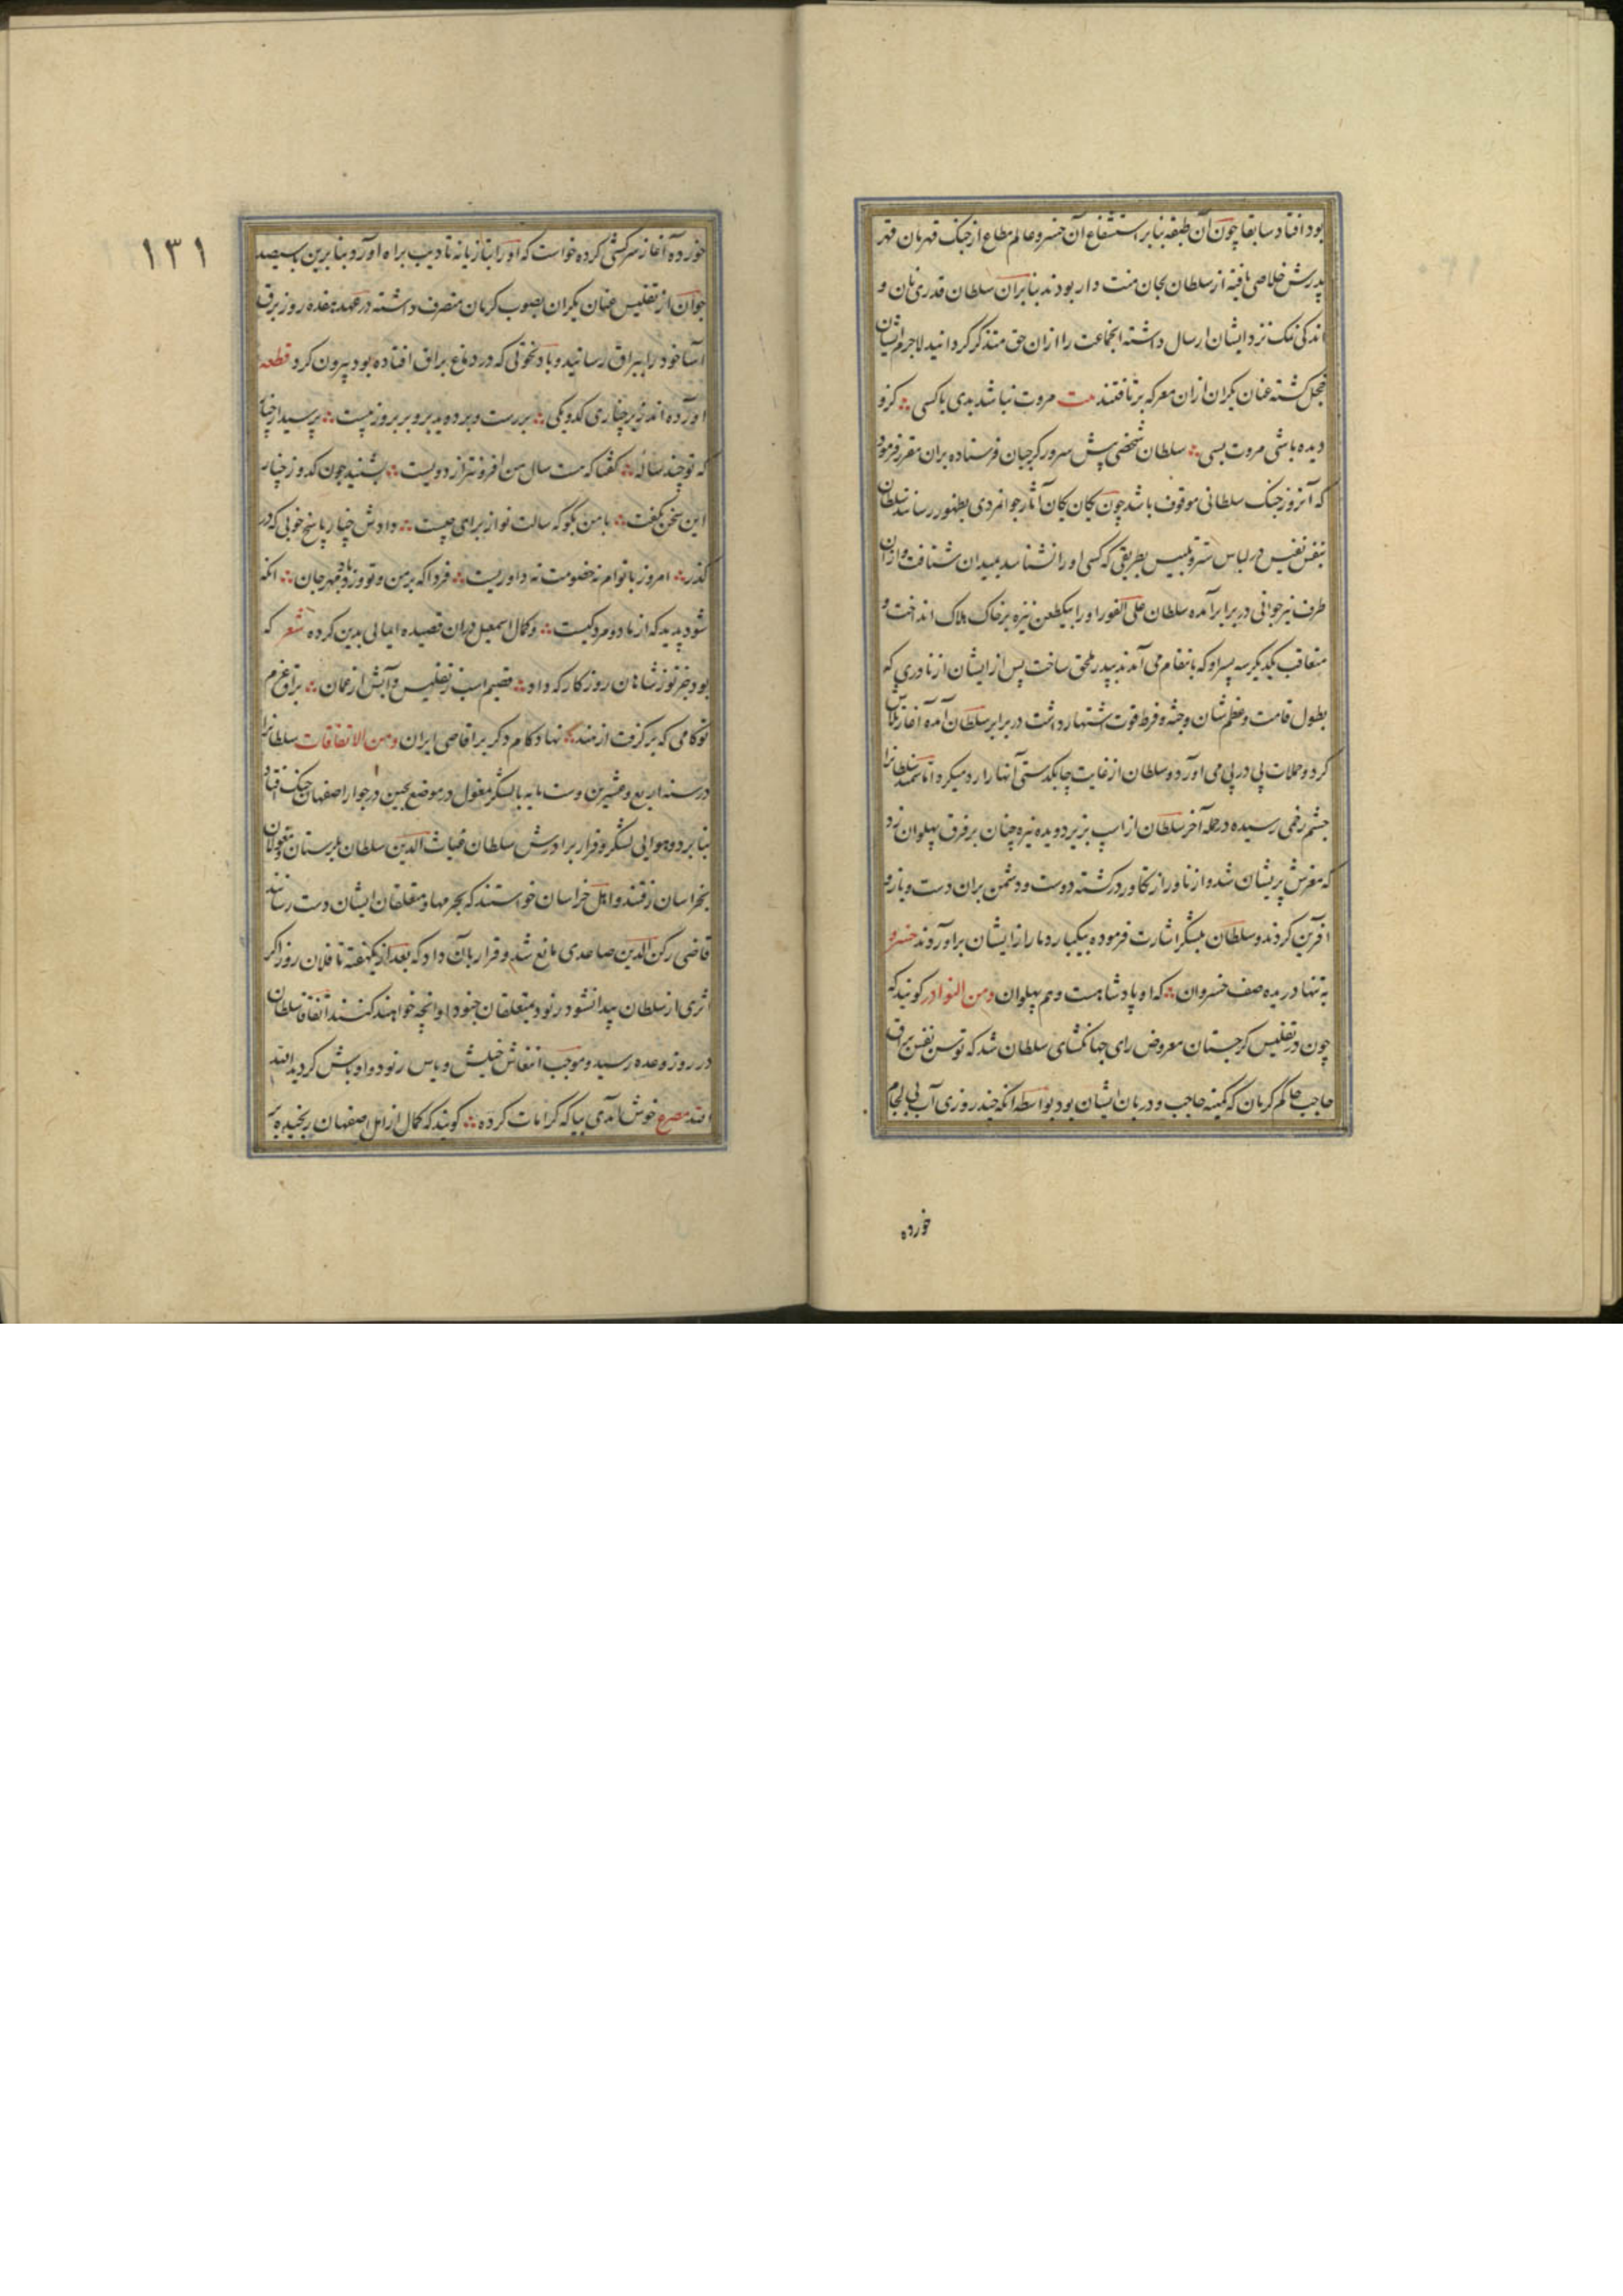 بود افتاد سابقا چون آن طبقه بنابر استشفاع آن خسرو عالم مطاع از چنک قهرمان قهر
پدرش خلاصی یافته از سلطان بجان منت دار بودند بنابران سلطان قدری نان و
اندکی نمک نزد ایشان ارسال داشته انجماعت را ازان حق متذکر کردانید لاجرم ایشان
خجل کشته عنان یکران ازان معرکه برتافتند بیت مروت نباشد بدی با کسی کزو
دیده باشی مروت بسی سلطان شخصی پیش سرور کرجیان فرستاده بران مقرر فرمود
که آنروز جنک سلطانی موقوف باشد چون یکان یکان آثار جوانمردی بظهور رسانند سلطان
بنفس نفیس در لباس تستر و تلبیس بطریقی که کسی او را نشناسد بمیدان شتافت و ازان
طرف نیز جوانی در برابر آمده سلطان علی الفور او را بیکطعن نیزه بر خاک هلاک انداخت و
متعاقب یکدیکر سه پسر او که بانتقام می آمدند بپدر ملحق ساخت پس از ایشان ازناوری که
بطول قامت و عظم شان و جثه و فرط قوت اشتهار داشت در برابر سلطان آمده آغاز تلاش
کرد و حملات پی در پی می آورد و سلطان از غایت چابکدستی آنها را رد میکرد اما سمند سلطانرا
چشم زخمی رسیده در حمله آخر سلطان از اسپ بزیر دویده نیزه چنان بر فرق پهلوان زد
که مغزش پریشان شد و ازناور از تکاور درکشته دوست و دشمن بران دست و بازو
افرین کردند و سلطان بلشکر اشارت فرموده بیکبار دمار از ایشان براوردند خسرو
به تنها دریده صف خسروان که او پادشاهست و هم پهلوان ومن النوادر کویند که
چون در تفلیس کرجستان معروض رای جهانکشای سلطان شد که توسن نفس براق
حاجب حاکم کرمان که کمینه حاجب و دربان ایشان بود بواسطه آنکه چند روزی آب بی لجام
خورده
۱۳۱
خورده آغاز سرکشی کرده خواست که او را بتازیانه تادیب براه اورد بنابرین بسیصد
جوان از تفلیس عنان یکران بصوب کرمان منصرف داشته در عهد هفده روز برق
آسا خود را ببراق رسانید و باد نخوتی که در دماغ براق افتاده بود بیرون کرد قطعه
اورده اند زیر چناری کدوبنی بررست و بردوید برو بر بروز بیست پرسید از چنار
که تو چند ساله کفتا که هست سال من افزونتر از دویست بشنید چون کدو ز چنار
این سخن بکفت با من بکو که سالت تو از برای چیست دادش چنار پاسخ خوبی که در
کذر امروز با توام نه خصومت نه داوریست فردا که بر من و تو وزد باد مهرجان انکه
شود پدید که از ما دو مرد کیست و کمال اسمعیل دران قصیده ایمایی بدین کرده شعر که
بود جز تو ز شاهان روزکار که داد قضیم اسب ز تفلیس و آبش از عمان براق عزم
تو کامی که برکرفت از هند نهاد کام دکر بر اقاصی ایران ومن الاتفاقات سلطانرا
در سنه اربع و عشرین و ستمایه با لشکر مغول در موضع سین در جوار اصفهان جنک افتاد
بنابر دو هوایی لشکر و فرار برادرش سلطان غیاث الدین سلطان بلرستان و مغولان
بخراسان رفتند و اهل خراسان خواستند که بحرمها و متعلقان ایشان دست رسانند
قاضی رکن الدین صاعدی مانع شد و قرار بآن داد که بعد از یکهفته تا فلان روز اکر
اثری از سلطان پیدا نشود رنود بمتعلقان جنود او انچه خواهند کنند اتفاقا سلطان
در روز وعده رسید و موجب انتعاش خیلش و یاس رنود و اوباش کردید لله
افتد مصرع خوش آمدی بیا که کرامات کرده کویند که کمال از اهل صفهان رنجیده